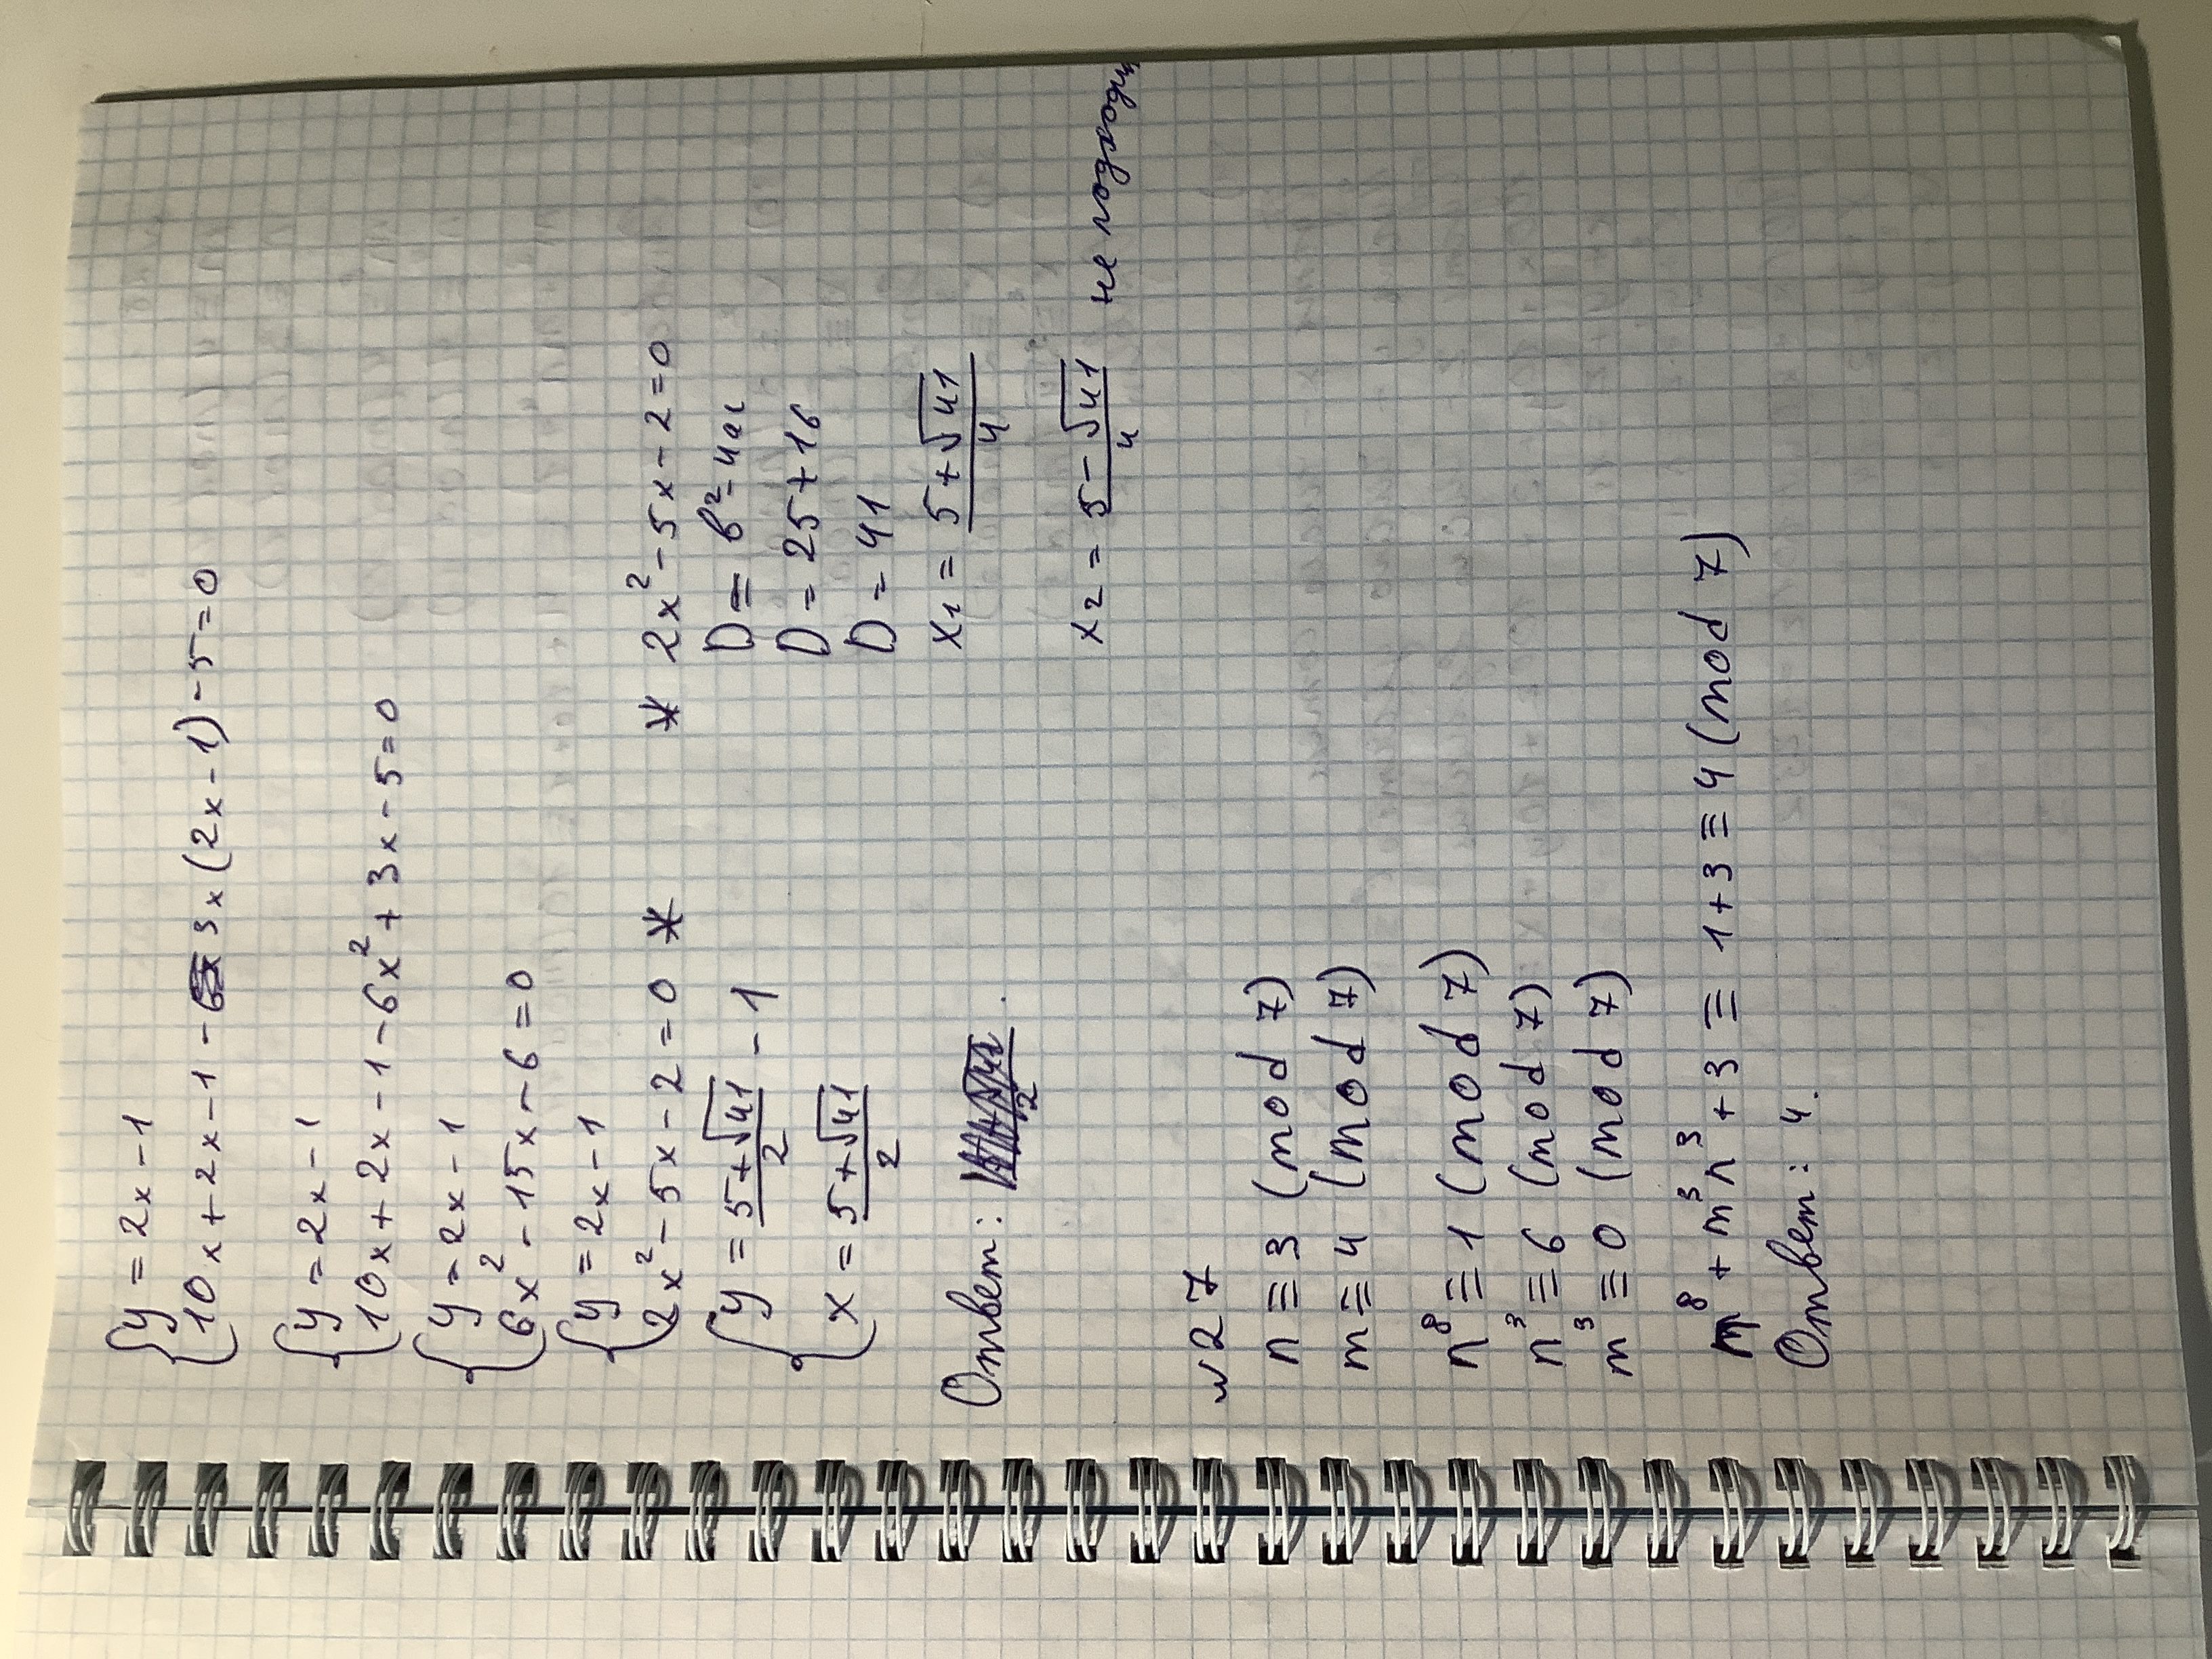 { y = 2x - 1
10x + 2x - 1 - 3x(2x - 1) - 5 = 0
{ y = 2x - 1
10x + 2x - 1 - 6x² + 3x - 5 = 0
{ y = 2x - 1
6x² - 15x - 6 = 0
{ y = 2x - 1
2x² - 5x - 2 = 0 *
{ y = (5+√41)/2 - 1
x = (5+√41)/2
Ответ:
* 2x² - 5x - 2 = 0
D = b² - 4ac
D = 25 + 16
D = 41
x₁ = (5+√41)/4
x₂ = (5-√41)/4 не подходит
№27
n ≡ 3 (mod 7)
m ≡ 4 (mod 7)
n⁸ ≡ 1 (mod 7)
n³ ≡ 6 (mod 7)
m³ ≡ 0 (mod 7)
m⁸ + m³n³ + 3 ≡ 1 + 3 ≡ 4 (mod 7)
Ответ: 4.